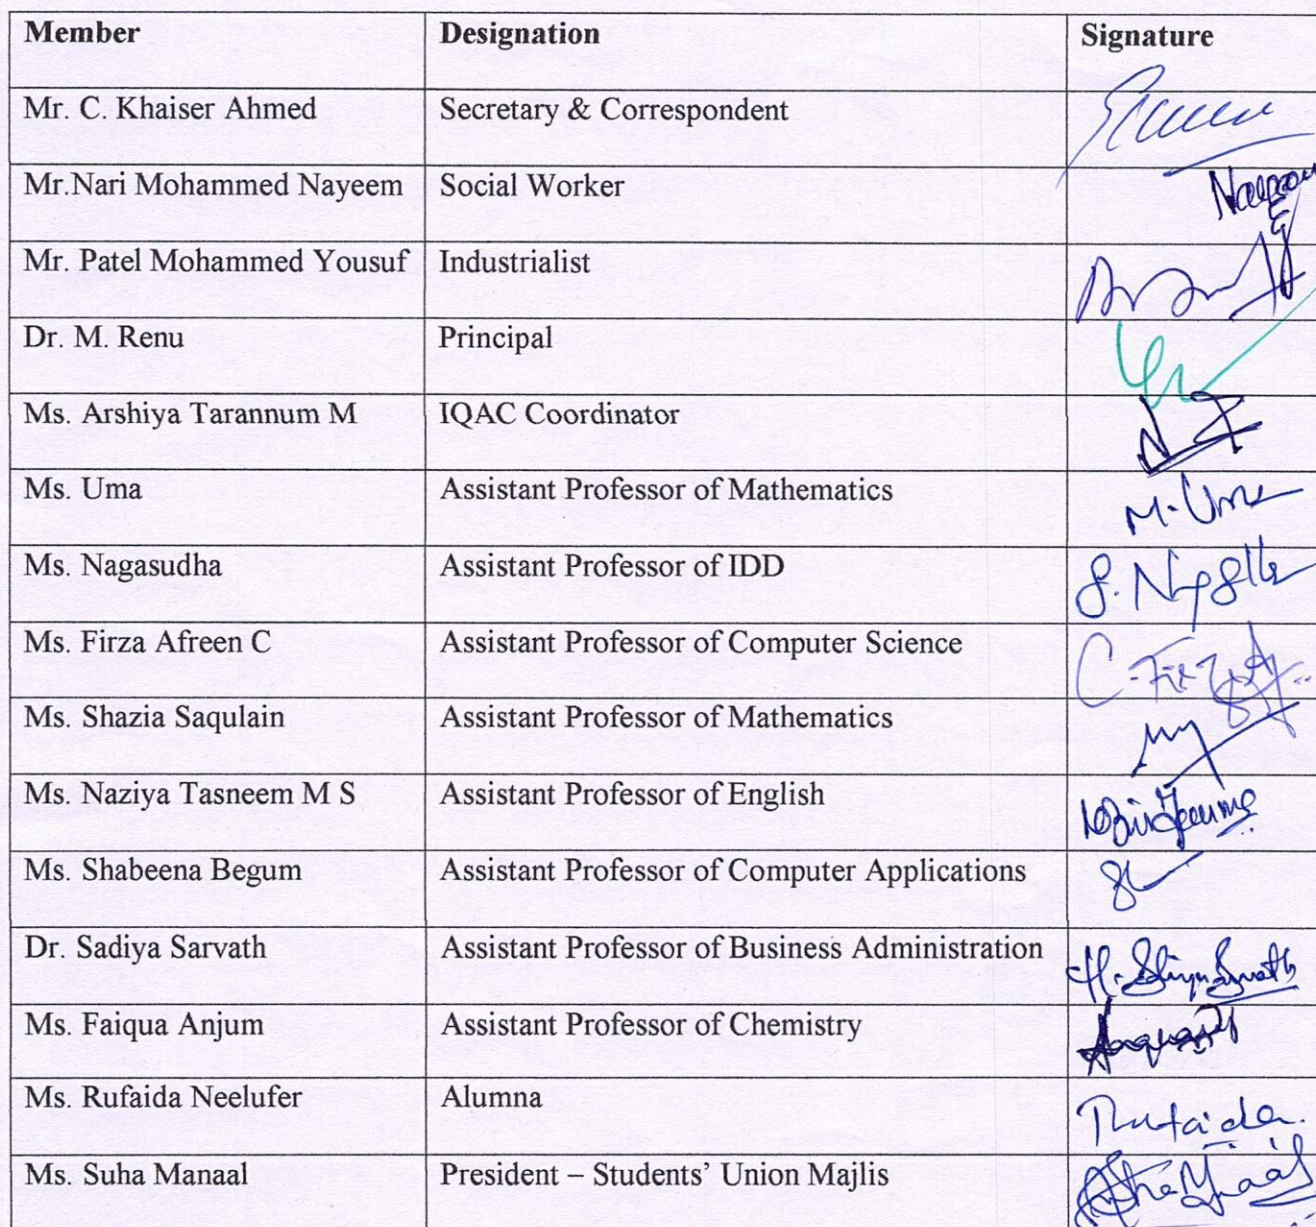 Member Designation Signature
Mr. C. Khaiser Ahmed Secretary & Correspondent
Mr.Nari Mohammed Nayeem Social Worker
Mr. Patel Mohammed Yousuf Industrialist
Dr. M. Renu Principal
Ms. Arshiya Tarannum M IQAC Coordinator
Ms. Uma Assistant Professor of Mathematics M. Uma
Ms. Nagasudha Assistant Professor of IDD
Ms. Firza Afreen C Assistant Professor of Computer Science
Ms. Shazia Saqulain Assistant Professor of Mathematics
Ms. Naziya Tasneem M S Assistant Professor of English
Ms. Shabeena Begum Assistant Professor of Computer Applications
Dr. Sadiya Sarvath Assistant Professor of Business Administration
Ms. Faiqua Anjum Assistant Professor of Chemistry
Ms. Rufaida Neelufer Alumna Rufaida.
Ms. Suha Manaal President – Students’ Union Majlis